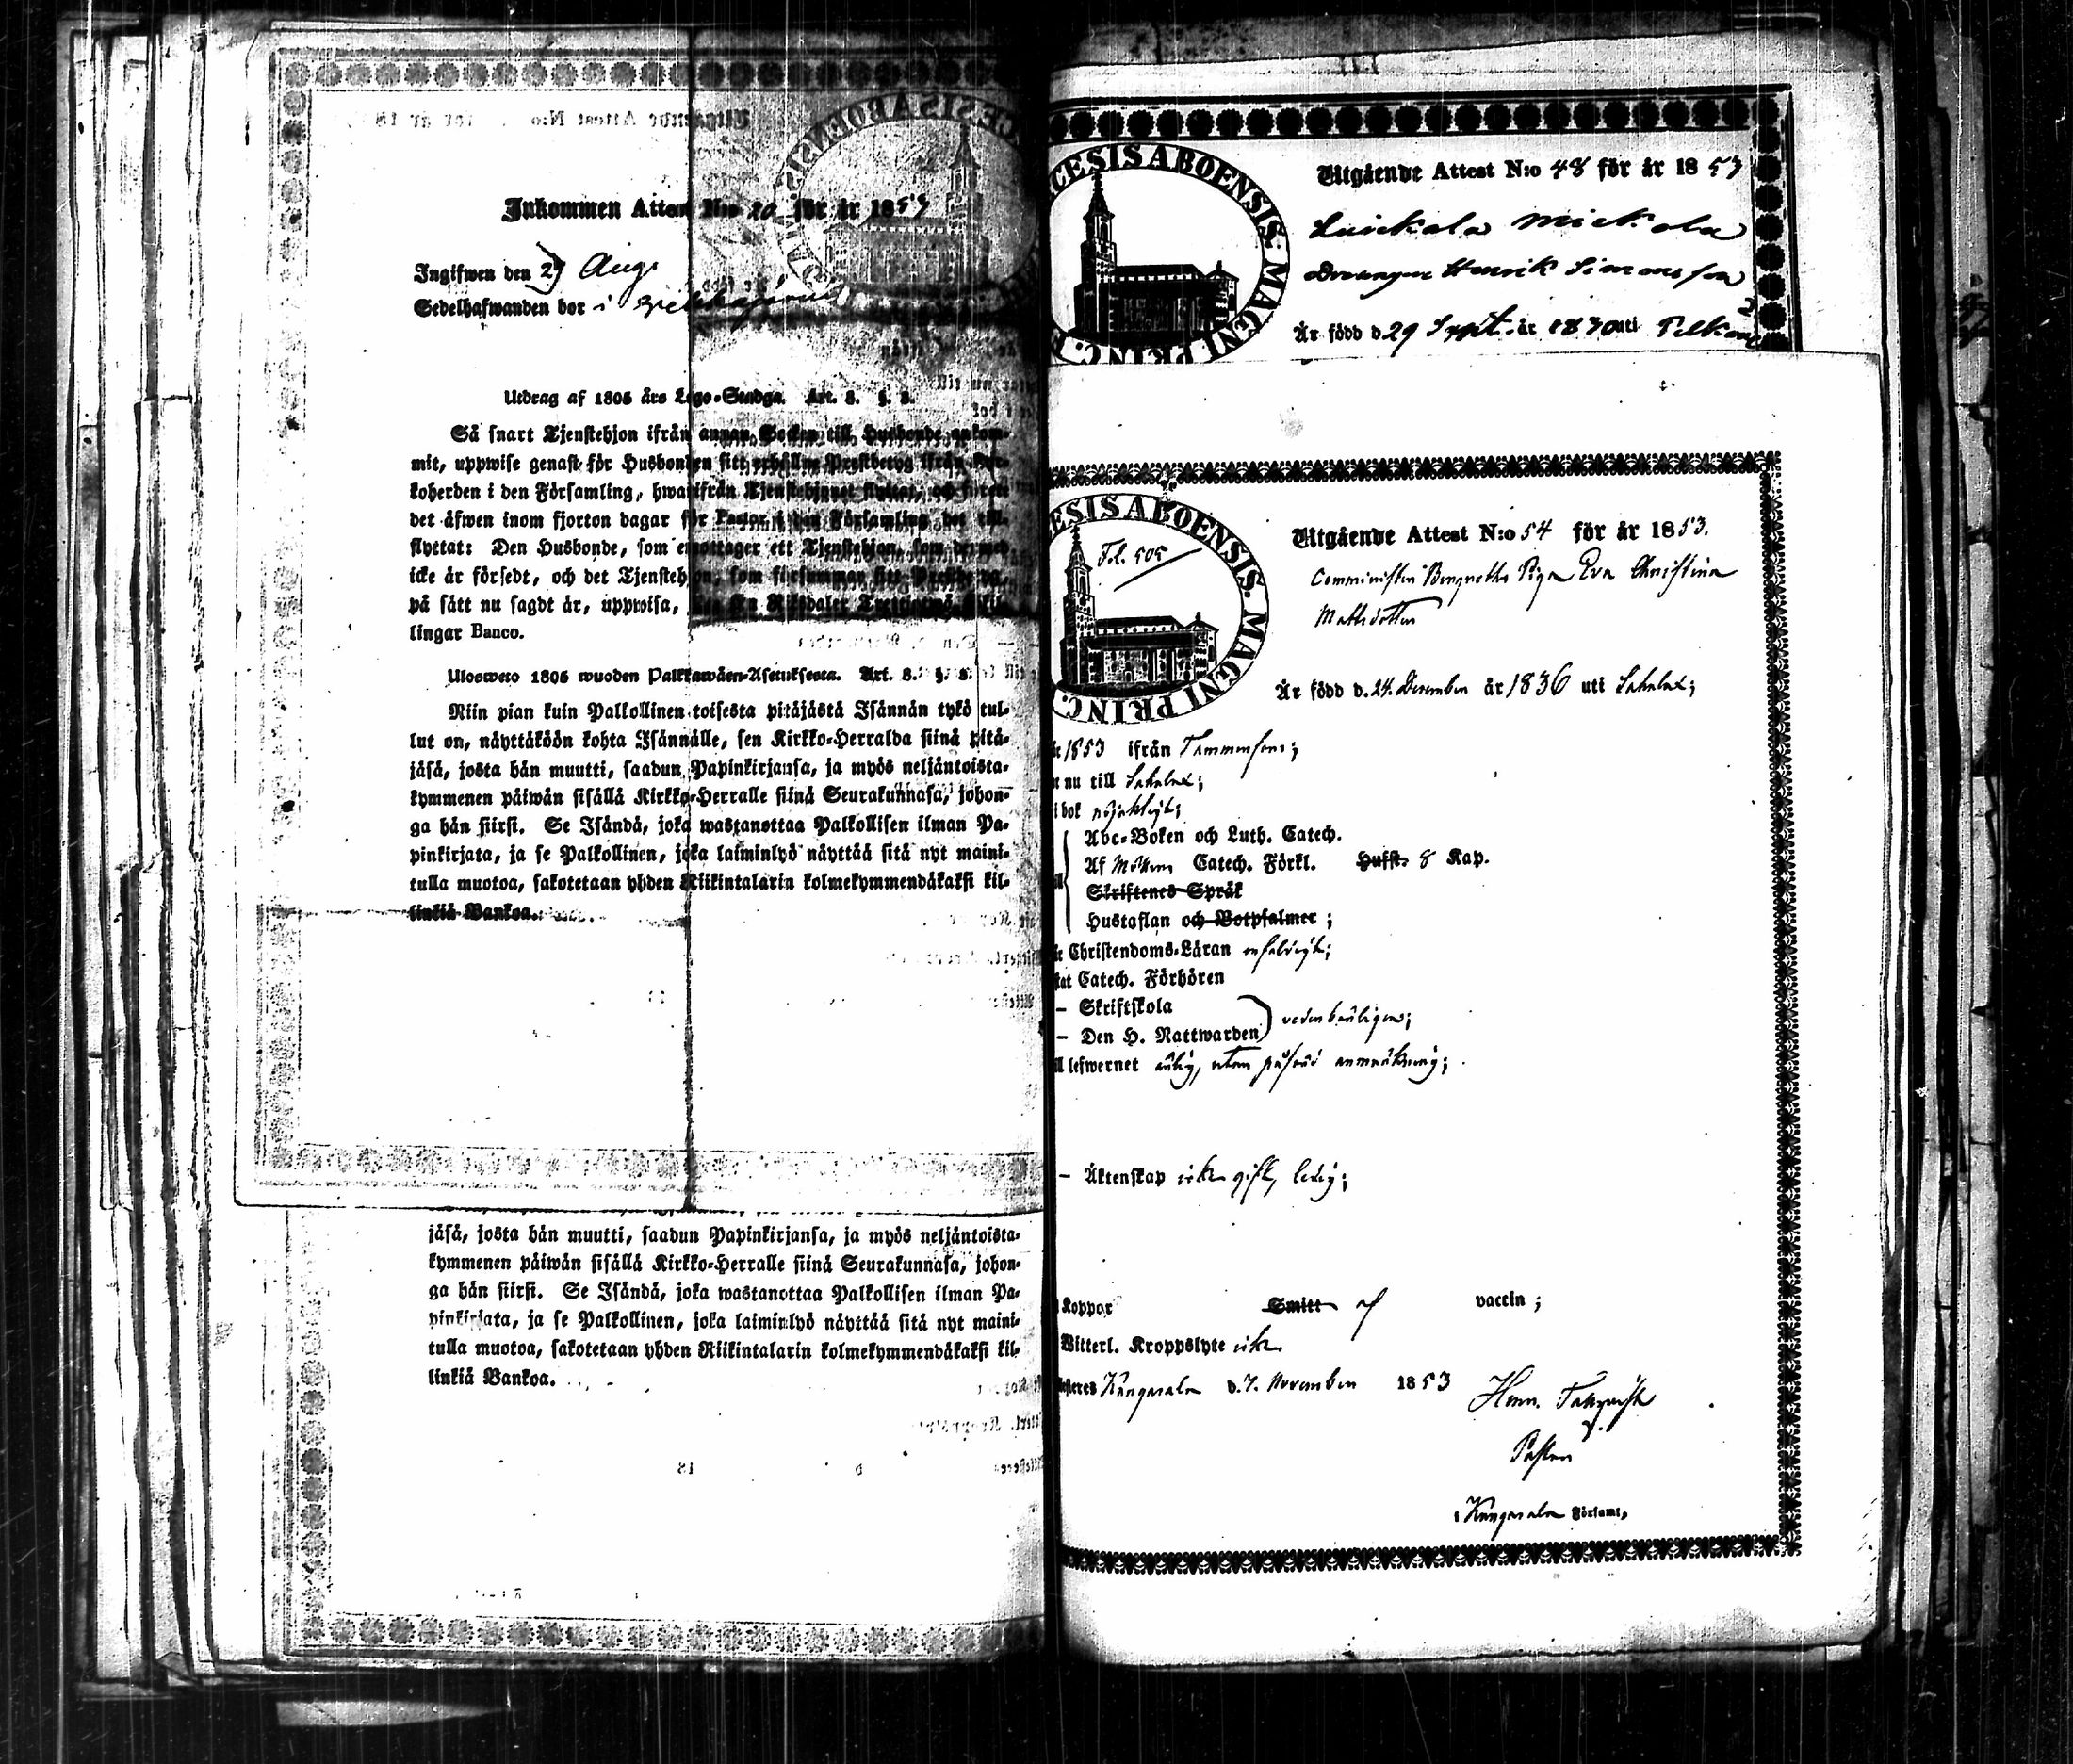 Inkommen Attest N:o 20 för år 1853
Ingifwen den 29 Aug.
Sedelhafwanden bor i
Utdrag af 1805 års Lego-Stadga. Art. 8. §. 8.
Så snart Tjenstehjon ifrån annan Socken till Husbonde ankom-
mit, uppwise genast för Husbonden sitt erhållne Prestbetyg ifrån Kyr-
koherden i den Församling, hwarifrån Tjenstehjonet flyttat, och
det äfwen inom fjorton dagar för Pastor i den Församling det till-
flyttat: Den Husbonde, som emottager ett Tjenstehjon, som dermed
icke är försedt, och det Tjenstehjon, som försummar sitt
på sätt nu sagdt är, uppwisa, En Riksdaler Trettiotwå Skil-
lingar Banco.
Ulosweto 1805 wuoden Palkkawäen-Asetuksesta. Art. 8. §. 8.
Niin pian kuin Palkollinen toisesta pitäjästä Isännän tykö tul-
lut on, näyttäköön kohta Isännälle, sen Kirkko-Herralda siinä pitä-
jäsä, josta hän muutti, saadun Papinkirjansa, ja myös neljäntoista-
kymmenen päiwän sisällä Kirkko-Herralle siinä Seurakunnasa, johon-
ga hän siirsi. Se Isändä, joka wastanottaa Palkollisen ilman Pa-
pinkirjata, ja se Palkollinen, joka laiminlyö näyttää sitä nyt maini-
tulla muotoa, sakotetaan yhden Riikintalarin kolmekymmendäkaksi kil-
linkiä Bankoa.
jäsä, josta hän muutti, saadun Papinkirjansa, ja myös neljäntoista-
kymmenen päiwän sisällä Kirkko-Herralle siinä Seurakunnasa, johon-
ga hän siirsi. Se Isändä, joka wastanottaa Palkollisen ilman Pa-
pinkirjata, ja se Palkollinen, joka laiminlyö näyttää sitä nyt maini-
tulla muotoa, sakotetaan yhden Riikintalarin kolmekymmendäkaksi kil-
linkiä Bankoa.
CESIS ABOENSIS. MAGNI PRINC.
Utgående Attest N:o 48 för år 1853
Luickala Mickola
Drengen Henrik Simonsson
Är född d. 29 Sept. år 1830 uti Pelkäne
ESIS ABOENSIS. MAGNI PRINC.
Fol. 505
Utgående Attest N:o 54 för år 1853.
Comministern Bergroths Piga Eva Christina
Mattsdotter
Är född d. 24 December år 1836 uti Sahalax;
1853 ifrån Tammerfors;
nu till Sahalax;
i bok nöjaktligt;
Abc-Boken och Luth. Catech.
Af Möllers Catech. Förkl. Hufst. 8 Kap.
Skriftenes Språk
Hustaflan och Botpsalmer;
Christendoms-Läran enfaldigt;
Catech. Förhören
– Skriftskola
– Den H. Nattwarden } vederbörligen;
lefwernet ärlig, utan påförd anmärkning;
– Äktenskap icke gift, ledig;
Koppor Smitt af vaccin;
Witterl. Kroppslyte icke
Kangasala d. 7. November 1853
Henr.
Pastor
i Kangasala Församl,